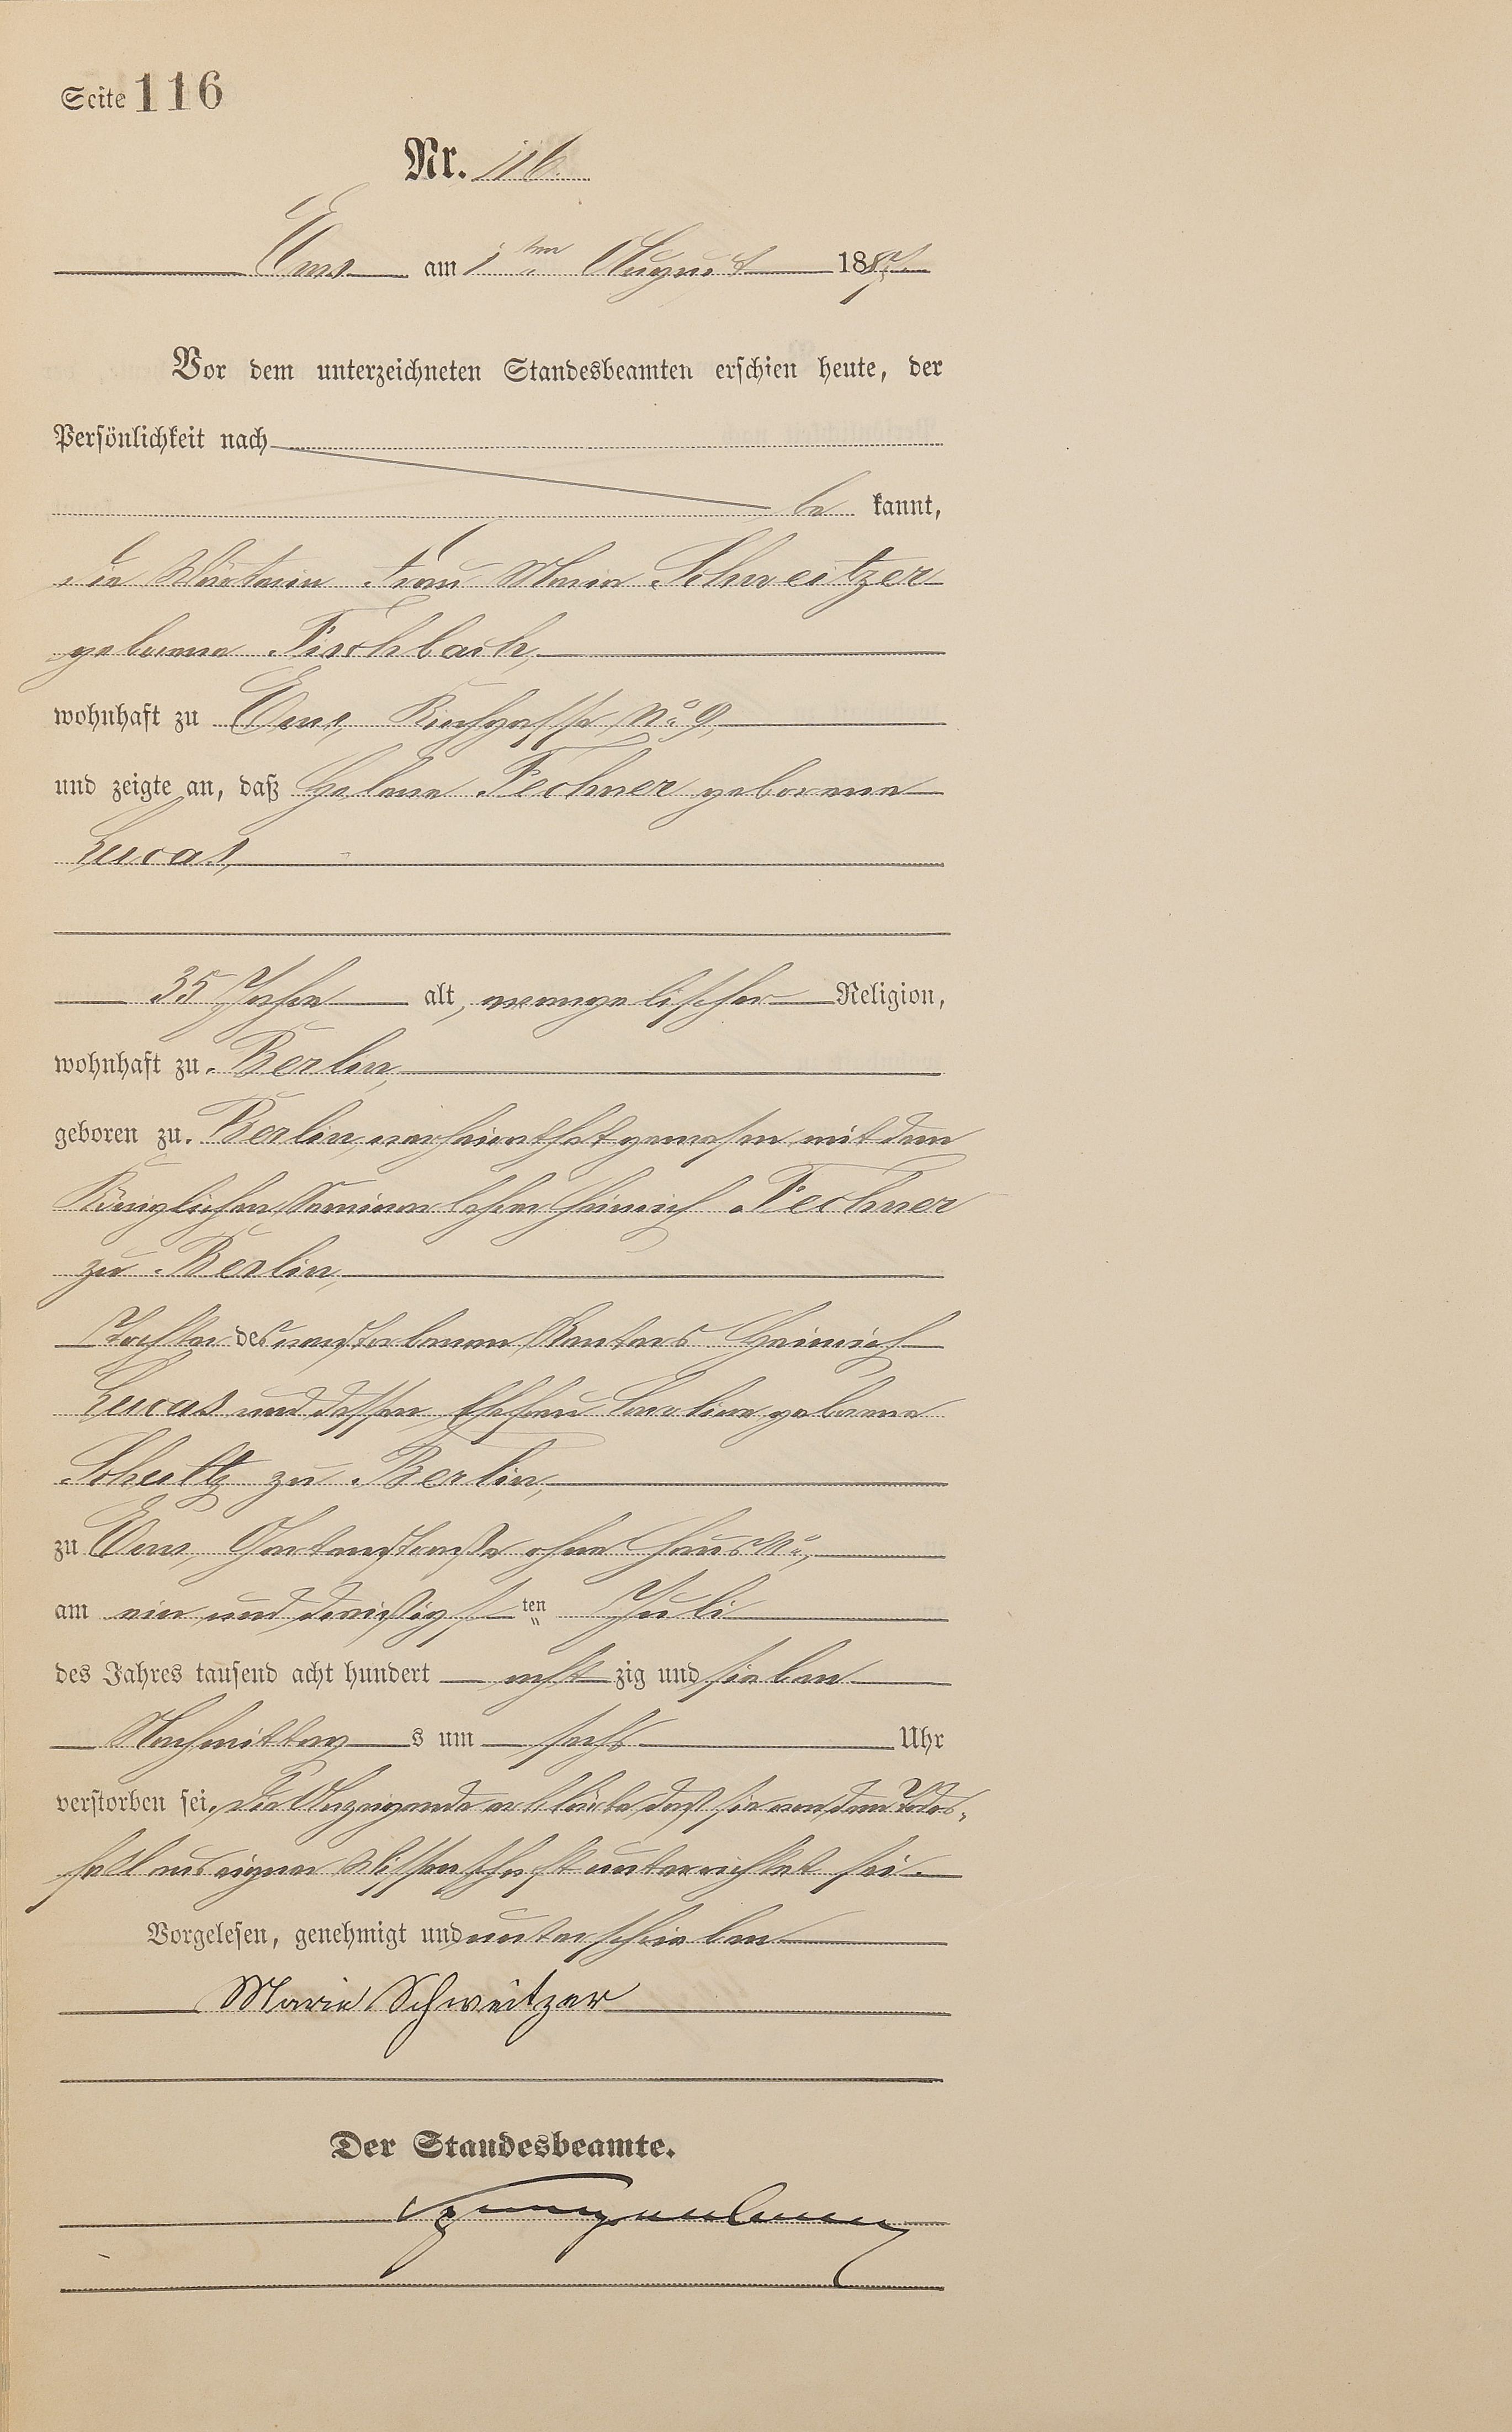 Seite 116
Nr. 116.
Ems am 1ten August 1887.
Vor dem unterzeichneten Standesbeamten erschien heute, der
Persönlichkeit nach
be kannt,
die Wärterin Frau Maria Schweitzer
geborene Fischbach,
wohnhaft zu Ems, Kirchgasse No 9,
und zeigte an, daß Helene Fechner geborene
Lucas,
35 Jahre alt, evangelischer Religion,
wohnhaft zu Berlin,
geboren zu Berlin, verheirathet gewesen mit dem
Königlichen Seminarlehrer Heinrich Fechner
zu Berlin,
Tochter des verstorbenen Kantors Heinrich
Lucas und dessen Ehefrau Caroline geborene
Schultz zu Berlin,
zu Ems, Gartenstraße ohne Haus No,
am ein und dreißigsten Juli
des Jahres tausend acht hundert acht zig und sieben
Nachmittag s um sechs Uhr
verstorben sei. Die Anzeigende erklärte daß sie von dem Todes-
fall aus eigner Wissenschaft unterrichtet sei.
Vorgelesen, genehmigt und unterschrieben
Marie Schweitzer
Der Standesbeamte.